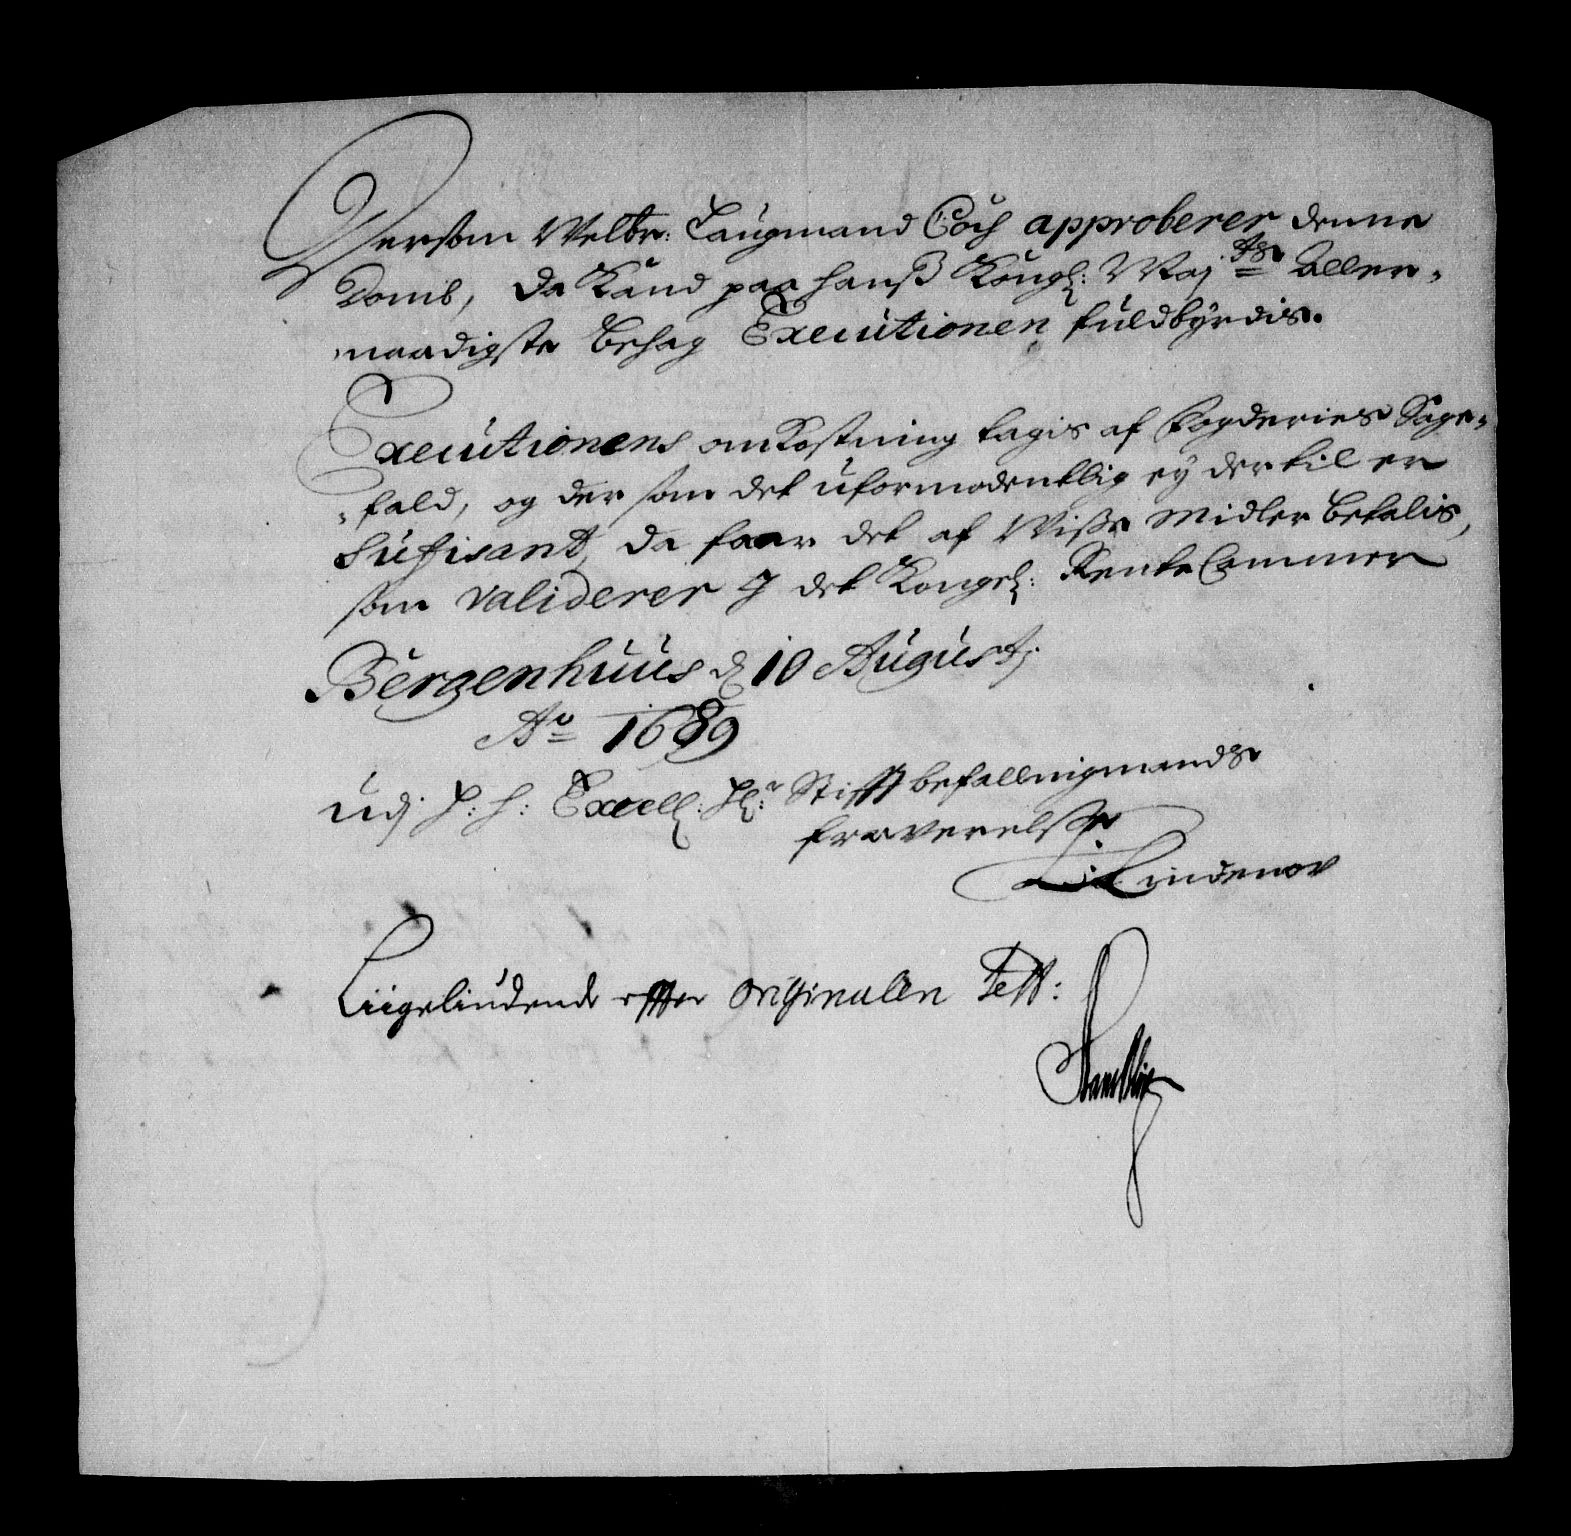 Dersom Welbr: Laugmand Coch approberer denne
Domb, da Kand paa hanß Kongl: Maj.ts Aller-
naadigste behag Executionen fuldbyrdis.
Executionens omkostning tagis af fogderies Sage-
fald, og der som det uformodentlig ej dertil er
Sufisant, da faar det af Wiße Midler betalis,
som validerer J det Kongel: RenteCammer
Bergenhuus d 10 Augustj
Ao 1689
Udj H: H: Excell: Hr: Stifftbefallnigmands
fraverelße
Lindenov
Liigeliudende effter originalen Test: